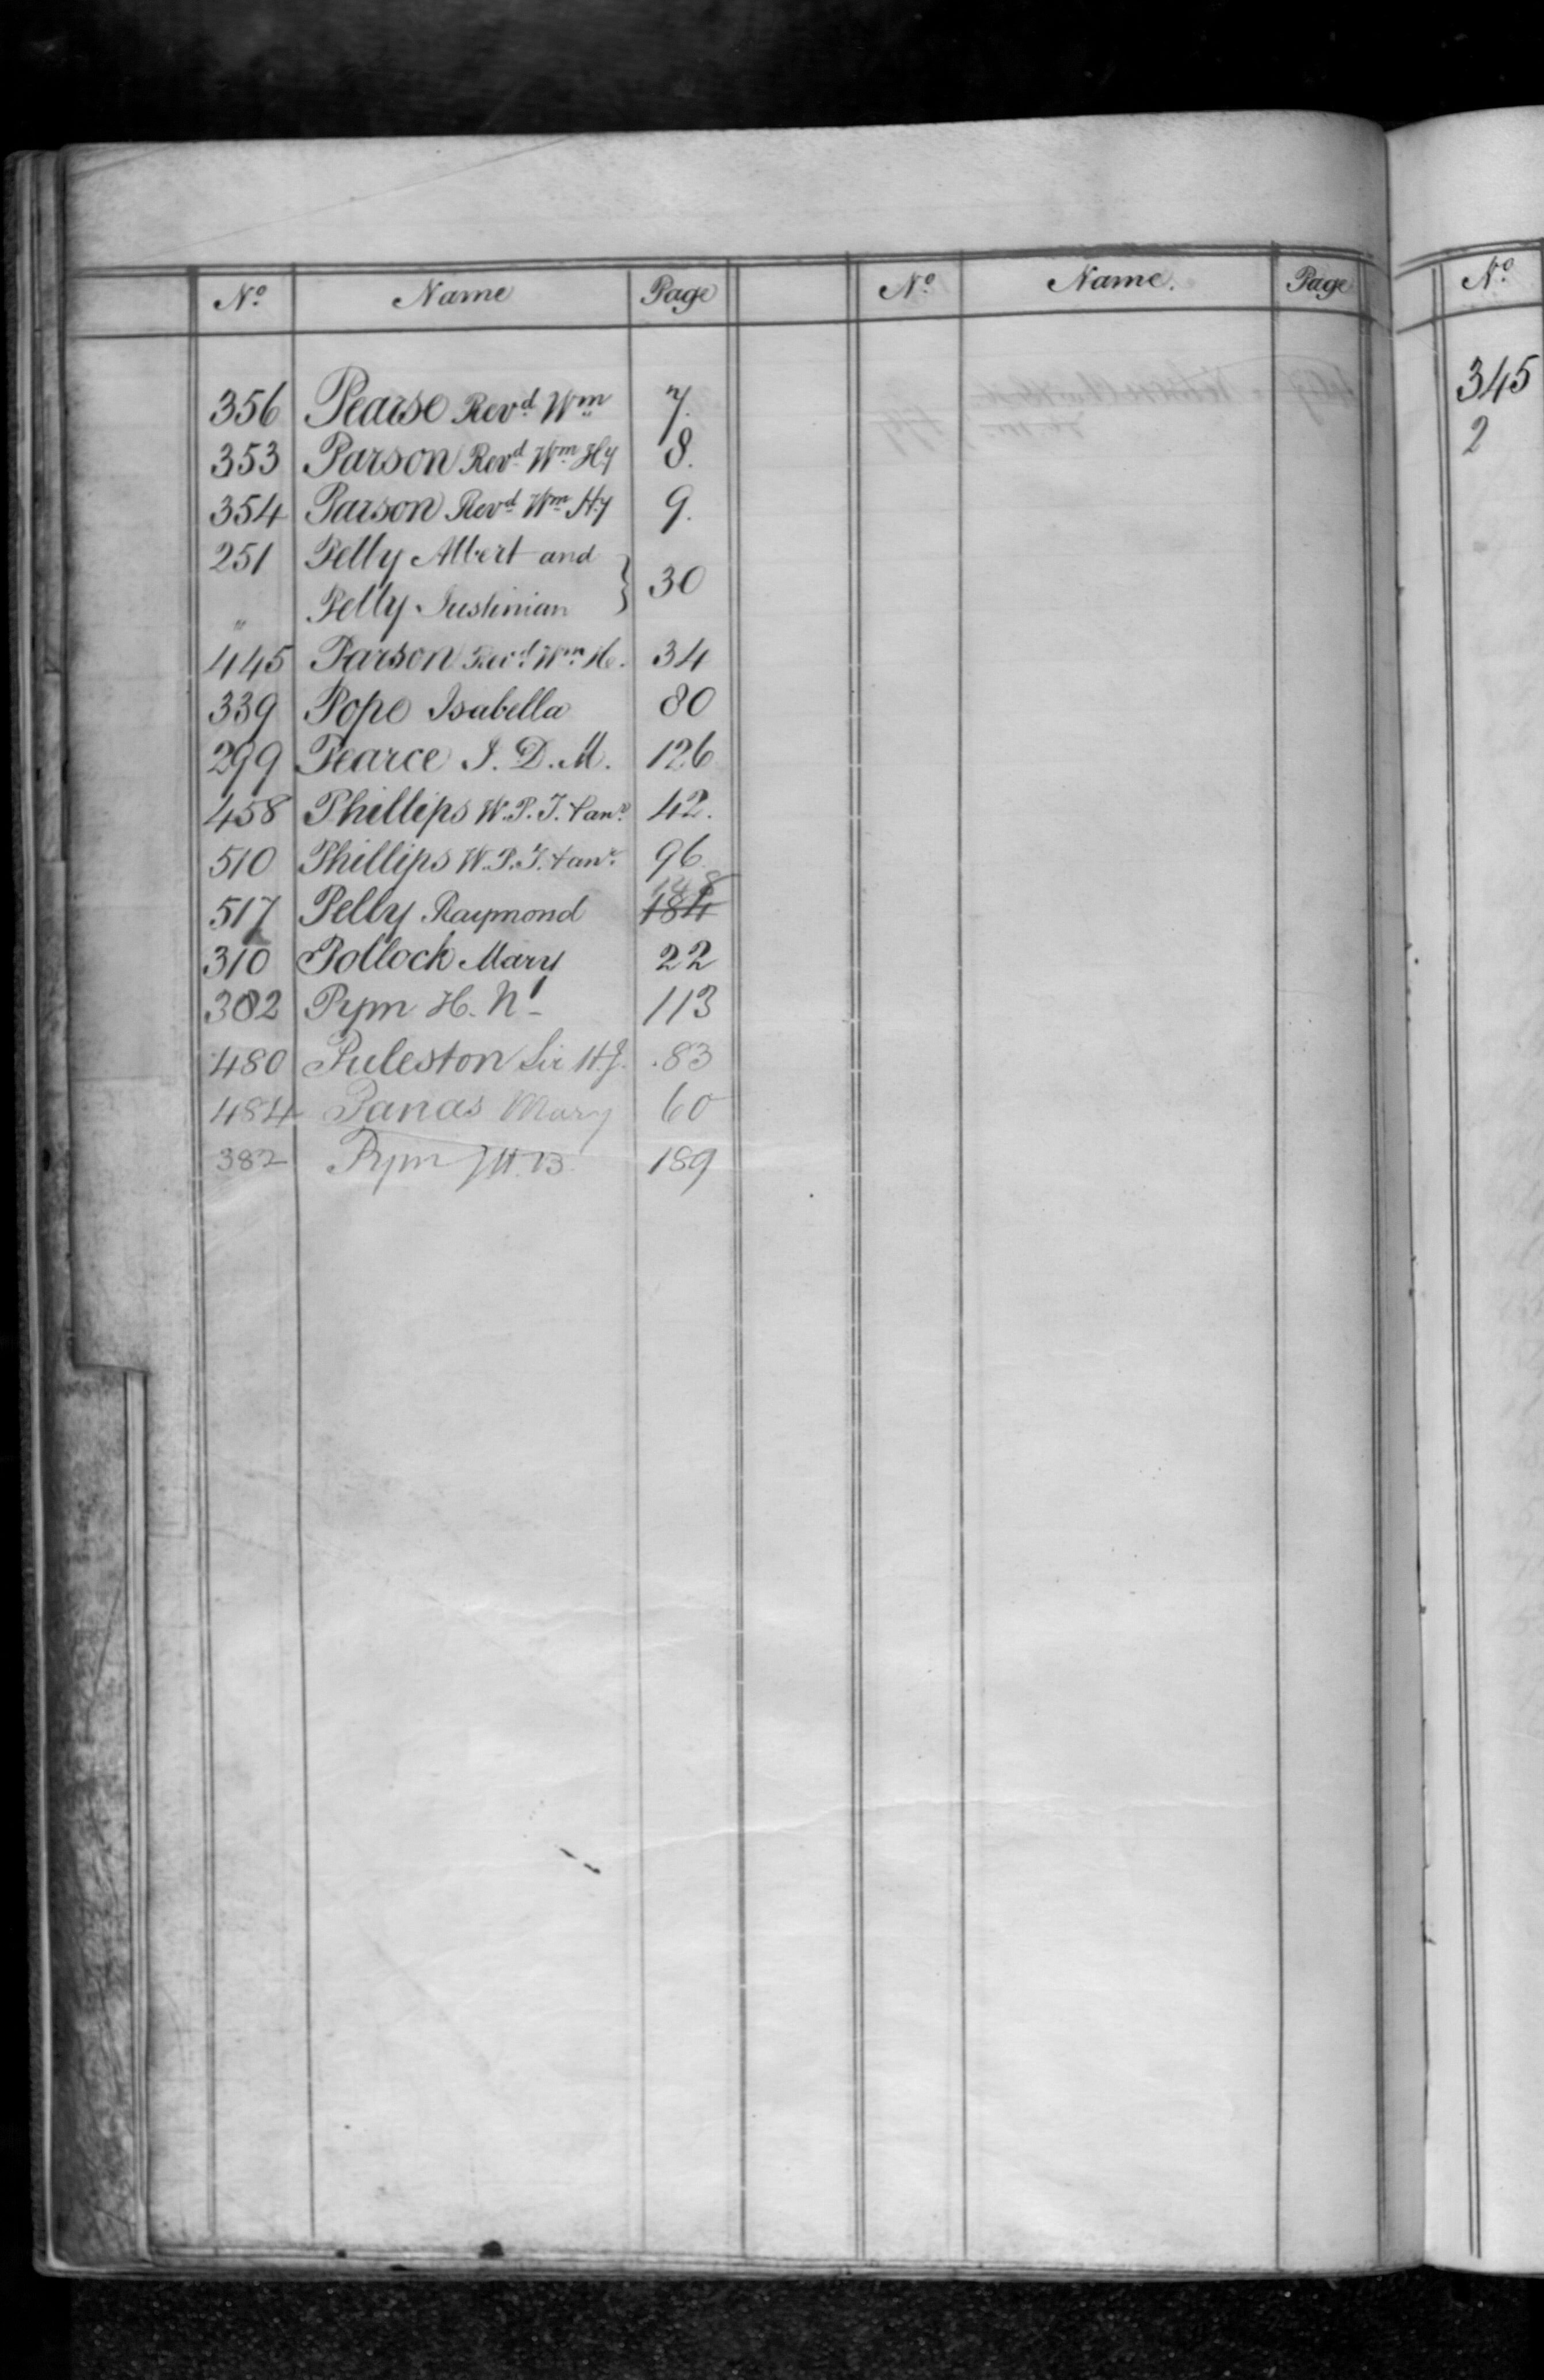 No. Name Page No. Name. Page
356 Pearse Revd Wm 7.
353 Parson Revd Wm Hy 8.
354 Parson Revd Wm Hy 9.
251 Pelly Albert and
" Pelly Justinian } 30
445 Parson Revd Wm H. 34
339 Pope Isabella 80
299 Pearce J. D. M. 126
458 Phillips W. P. J. & anr. 42.
510 Phillips W. P. J. & anr. 96
517 Pelly Raymond 184
310 Pollock Mary 22
382 Pym H. N. 113
480 Puleston Sir H. J. 83
484 Panas Mary 60
382 Pym H. B. 189
No.
345
2